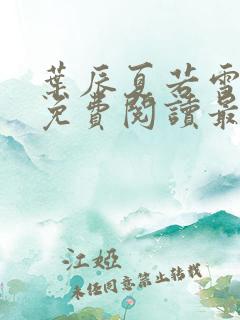 葉辰夏若雪
免費閱讀最
江婭
未經同意禁止轉載